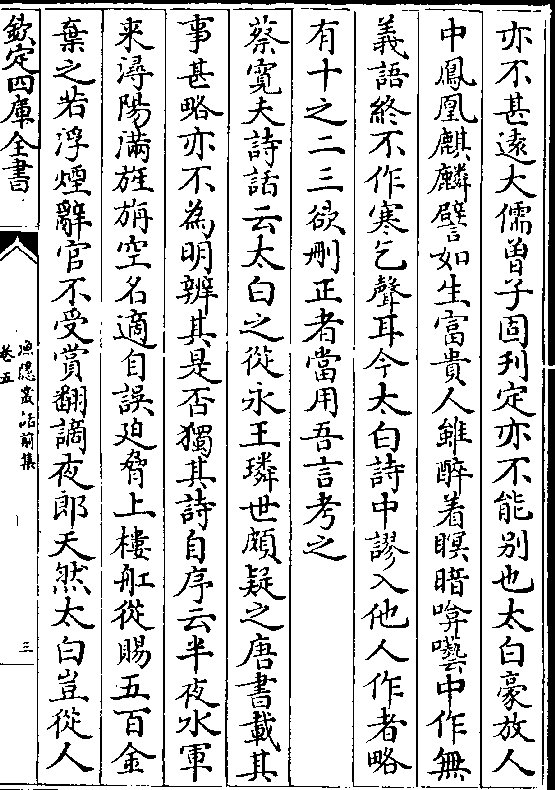 亦不甚遠大儒曽子固刋定亦不能别也太白豪放人
中鳳凰麒麟譬如生富貴人雖醉着瞑暗啽囈中作無
義語終不作寒乞聲耳今太白詩中謬入他人作者略
有十之二三欲刪正者當用吾言考之
蔡寛夫詩話云太白之從永王璘世頗疑之唐書載其
事甚略亦不為明辨其是否獨其詩自序云半夜水軍
來潯陽滿旌旃空名適自誤廹脅上樓舡從賜五百金
棄之若浮煙辭官不受賞翻謫夜郎天然太白豈從人
欽定四庫全書
漁隱叢話前集
卷五
三